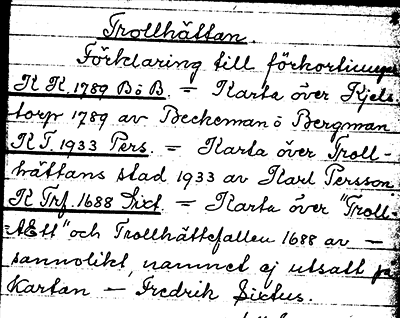 Trollhättan.
Förklaring till förkortningar
K K. 1789 B ö B. = Karta över Kjels-
torp 1789 av Beckeman ö Bergman
K T. 1933 Pers. = Karta över Troll-
hättans stad 1933 av Karl Persson.
K Trf. 1688 Sixt. = Karta över "Troll-
Ætt" och Trollhättefallen 1688 av —
sannolikt, namnet ej utsatt på
kartan — Fredrik Sixtus.